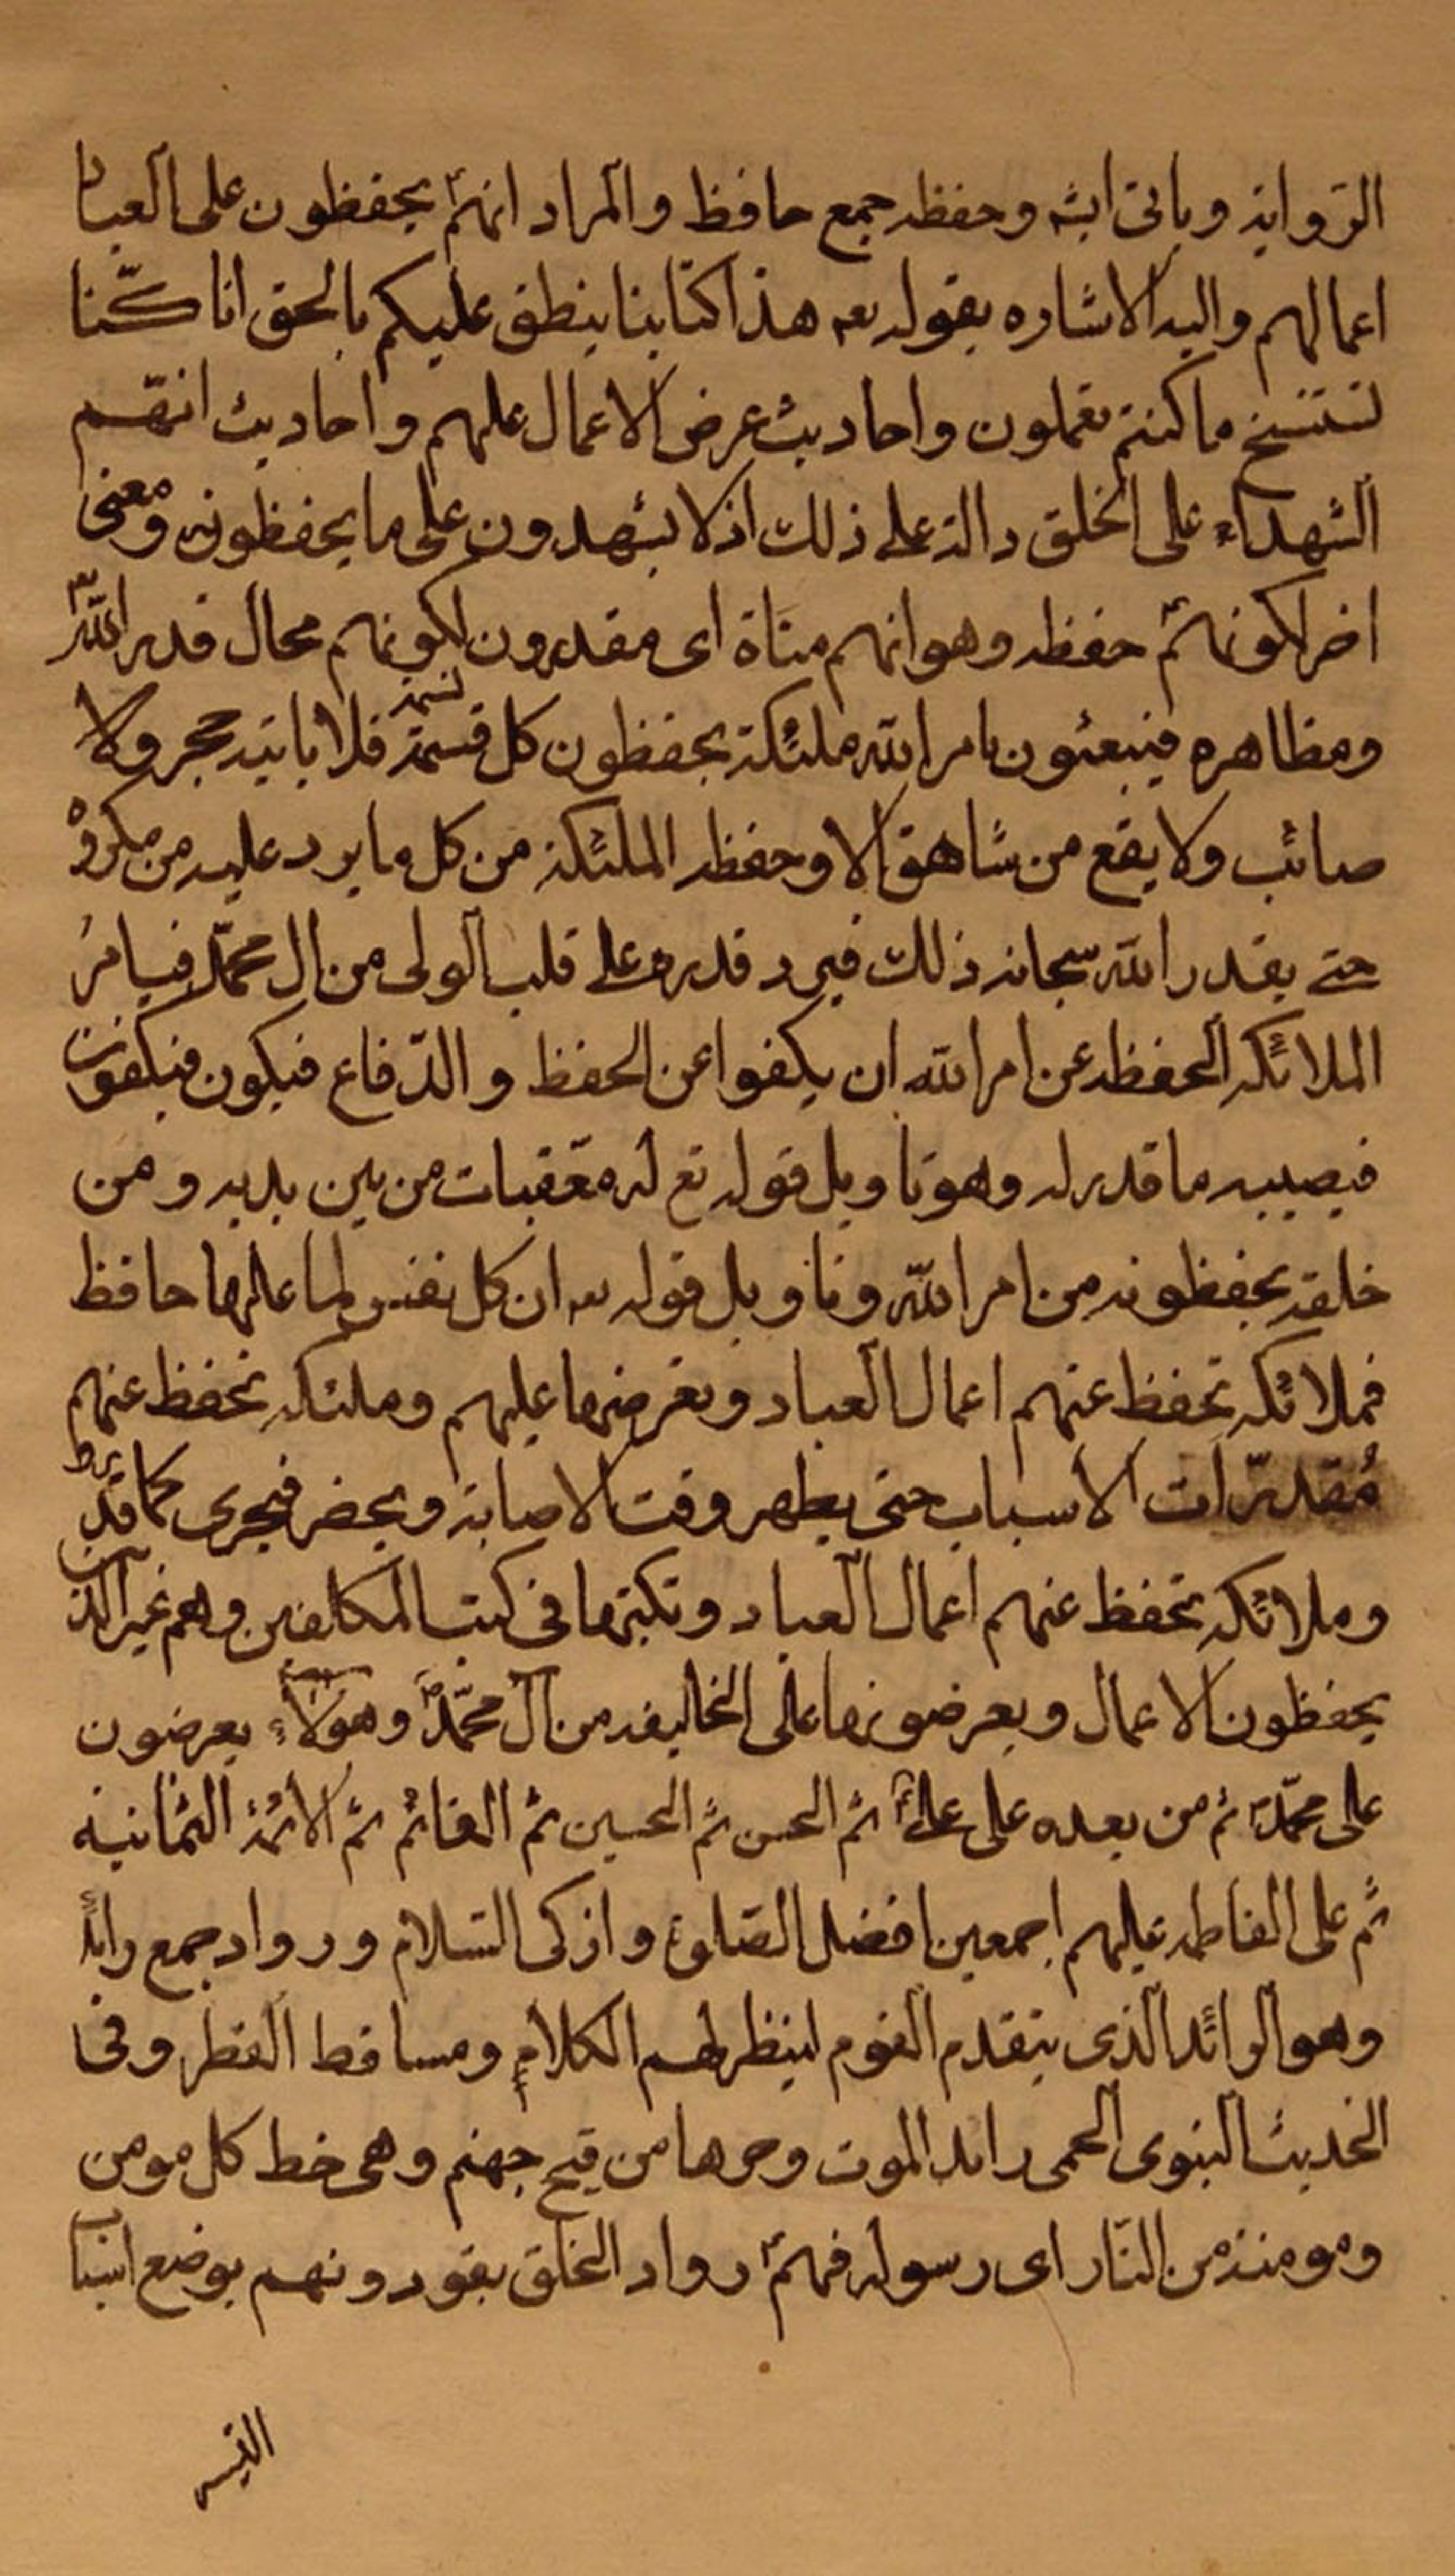 الروایة ویاتی انشه وحفظه جمع حافظ والمراد انهم یحفظون على العباد
اعمالهم والیه الاشاره بقوله تعه هذا کتابنا ینطق علیکم بالحق انا کنا
نستنسخ ما کنتم تعملون واحادیث عرض الاعمال علیهم واحادیث انهم
الشهداء على الخلق دالة على ذلك اذ لا یشهدون على ما یحفظونه ومعنى
اخر لکونهم حفظه وهو انهم مناة اى مقدرون لکونهم محال قدر الله
ومظاهره فیبعثون بامر الله ملئکة یحفظون کل قسمة نسمة فلا یاتیه حجر ولا
صائب ولا یقع من شاهق الا وحفظه الملئکة من کل ما یرد علیه من مکروه
حتى یقدر الله سبحانه ذلك فیرد قدره على قلب الولى من ال محمد فیامر
الملائکه الحفظه عن امر الله ان یکفوا عن الحفظ والدفاع فیکون فیکفون
فیصیبه ما قدر له وهو تاویل قوله تع له معقبات من بین یدیه ومن
خلفه یحفظونه من امر الله وتاویل قوله تعه ان کل نفس لما علیها حافظ
فملائکه تحفظ عنهم اعمال العباد وتعرضها علیهم وملئکه تحفظ عنهم
مقدرات الاسباب حتى یظهر وقت الاصابة ویحضر فیجرى کما قدر
وملائکه تحفظ عنهم اعمال العباد وتکتبها فى کتب المکلفین وهم غیر الذین
یحفظون الاعمال ویعرضونها على الخالیفه من ال محمد وهولاء یعرضون
على محمد ثم من بعده على على ثم الحسن ثم الحسین ثم القائم ثم الائمة الثمانیة
ثم على الفاطمه علیهم اجمعین افضل الصلوة وازکى السلام ورواد جمع رائد
وهو الرائد الذى یتقدم القوم لینظر لهم الکلام ومساقط القطر وفى
الحدیث النبوى الحمى رائد الموت وحرها من قیح جهنم وهى خط کل مومن
ومومنة من النار اى رسوله فهم رواد الخلق یقودونهم بوضع اسباب